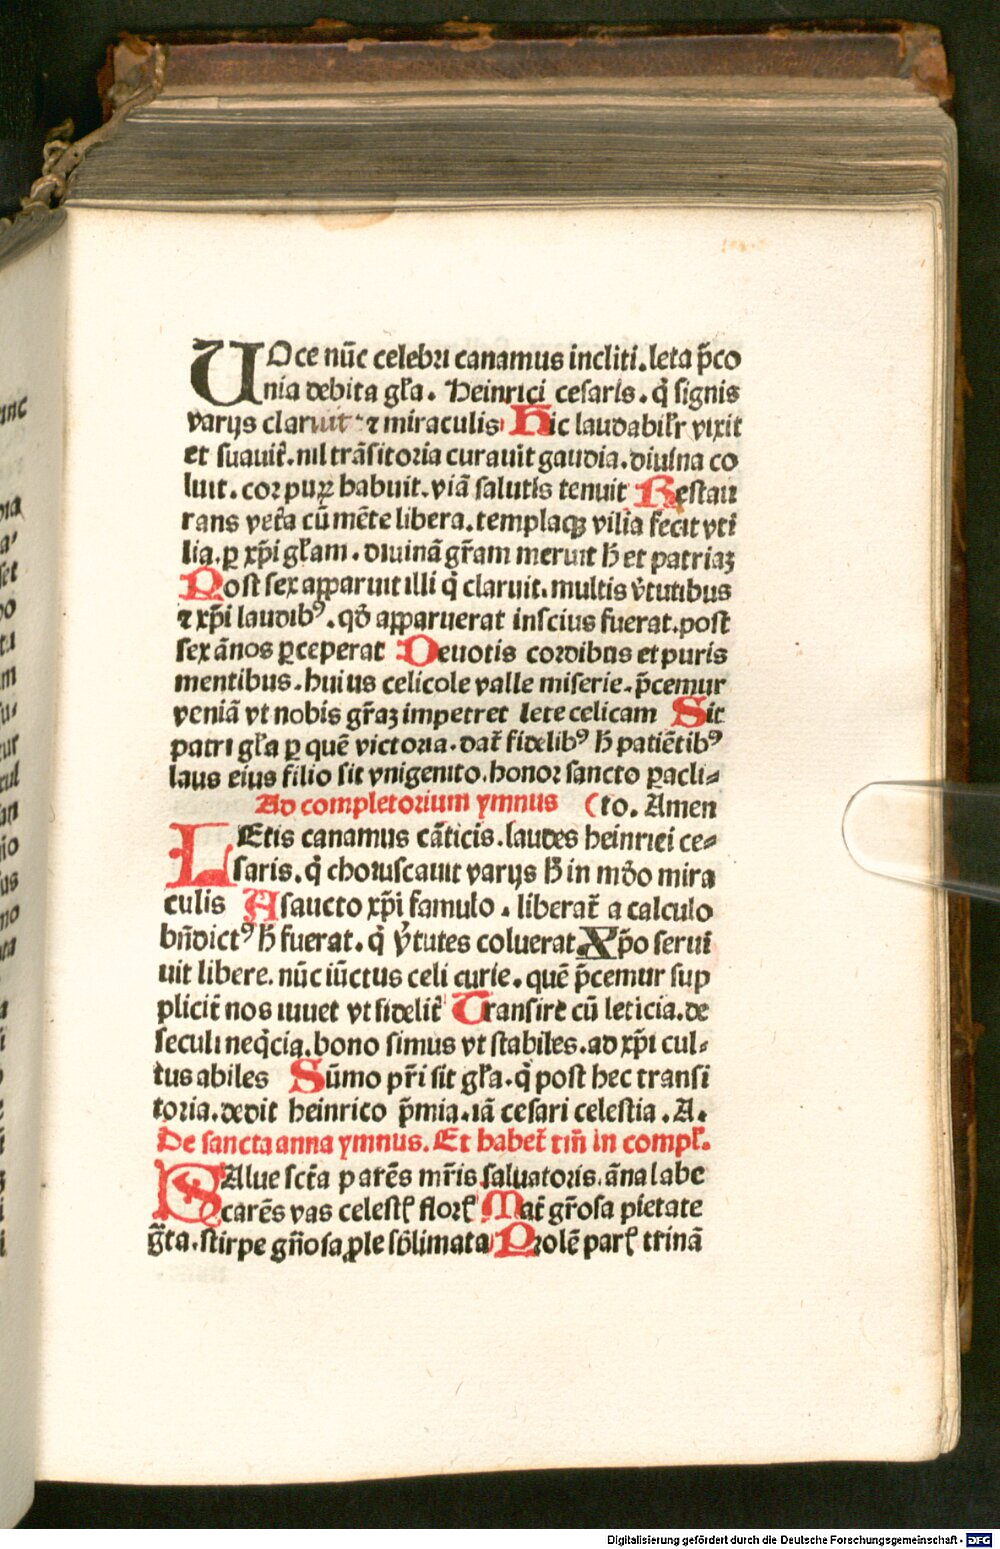 UOce nūc celebri canamus incliti. leta p̄co
nia debita gl̄a. Heinrici cesaris. q̄ signis
varijs claruit ⁊ miraculis Hic laudabilr̄ vixit
et suauit̄. nil trāsitoria curauit gaudia. diuina co
luit. corpuꝝ habuit. viā salutis tenuit Restau
rans vet̄a cū mēte libera. templaqꝫ vilia fecit vti
lia. ꝑ xp̄i gl̄am. diuinā gr̄am meruit h̄ et patriaꝫ
Post sex apparuit illi q̄ claruit. multis v̄tutibus
⁊ xp̄i laudibꝰ. qð apparuerat inscius fuerat. post
sex ānos ꝑceperat Deuotis cordibus et puris
mentibus. huius celicole valle miserie. p̄cemur
veniā vt nobis gr̄aꝫ impetret lete celicam Sit
patri gl̄a ꝑ quē victoria. dat̄ fidelibꝰ h̄ patiētibꝰ
laus eius filio sit vnigenito. honor sancto ꝑacli⸗
Ad completorium ymnus (to. Amen
LEtis canamus cāticis. laudes heinrici ce⸗
saris. q̄ choruscauit varijs h̄ in mūdo mira
culis A sancto xp̄i famulo. liberat̄ a calculo
bn̄dictꝰ h̄ fuerat. q̄ v̄tutes coluerat Xp̄o serui
uit libere. nūc iūctus celi curie. quē p̄cemur sup
plicit̄ nos iuuet vt fidelit̄ Transire cū leticia. de
seculi neq̄cia. bono simus vt stabiles. ad xp̄i cul⸗
tus abiles Sūmo pr̄i sit gl̄a. q̄ post hec transi
toria. dedit heinrico p̄mia. iā cesari celestia. A.
De sancta anna ymnus. Et habet̄ tm̄ in compl̄.
SAlue sct̄a parēs mr̄is saluatoris. āna labe
carēs vas celestꝭ florꝭ Mat̄ gr̄osa pietate
gr̄ta. stirpe gn̄osa ꝓle sb̄limata Prolē parꝭ trinā